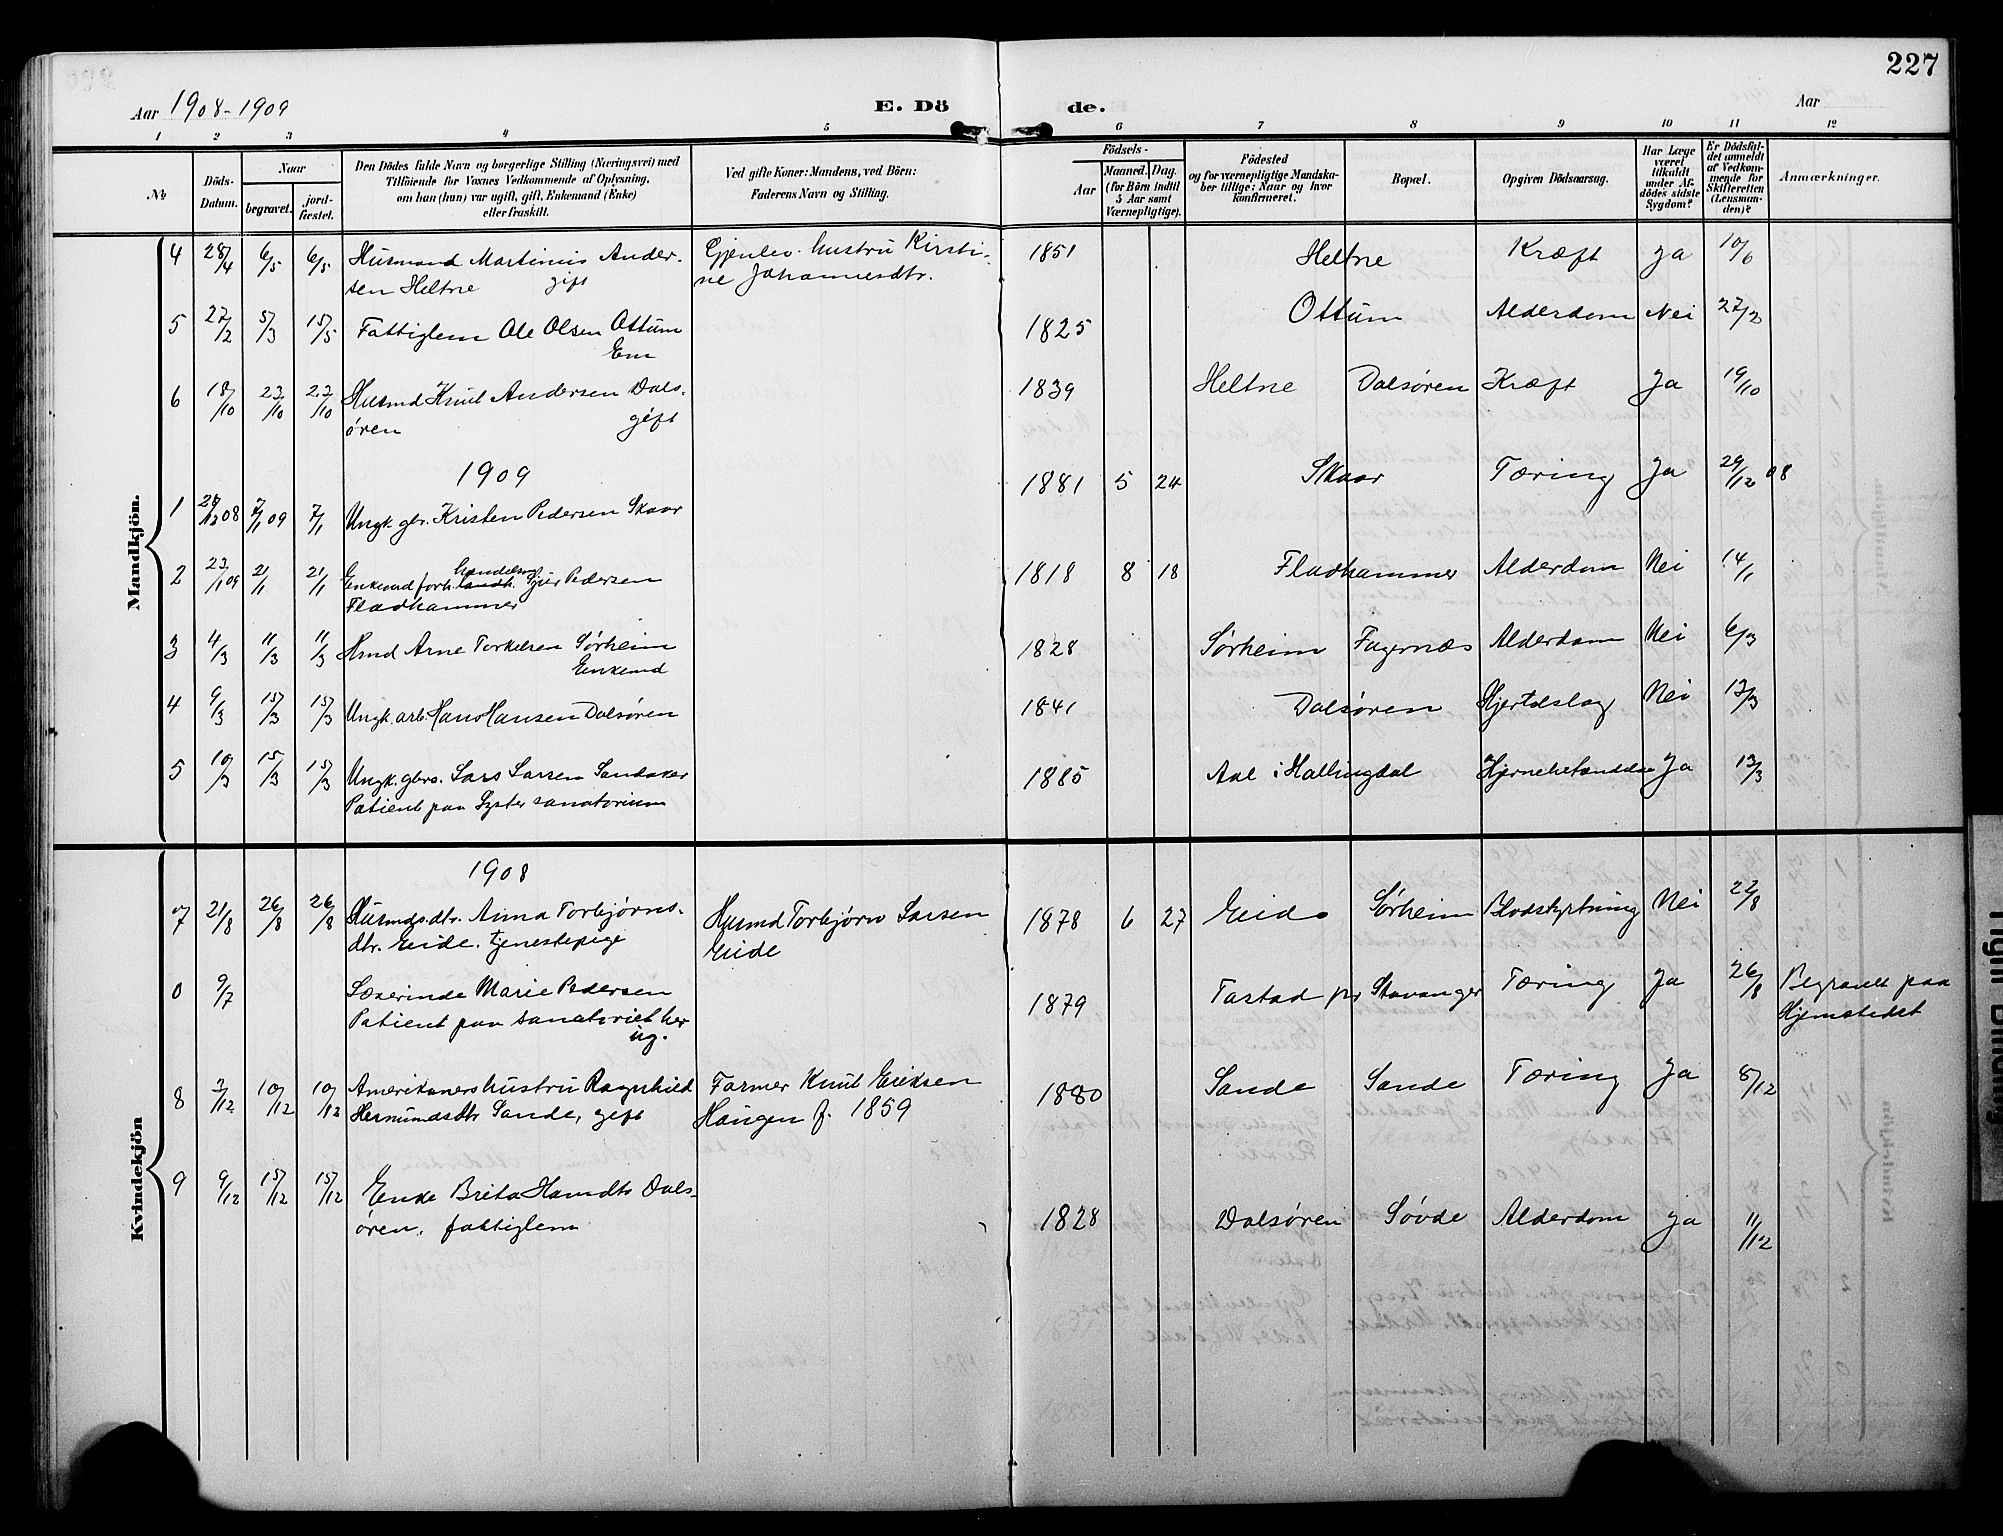 227
Aar 1908-1909 E. Dö de. Aar
1 2 3 4 5 6 7 8 9 10 11 12
№ Döds-Datum. Naar begravet. jordfæstet. Den Dödes fulde Navn og borgerlige Stilling (Næringsvei) med Tilföiende for Voxnes Vedkommende af Oplysning, om han (hun) var ugift, gift, Enkemand (Enke) eller fraskilt. Ved gifte Koner: Mandens, ved Börn: Faderens Navn og Stilling. Födsels- Aar Maaned. Dag. (for Börn indtil 5 Aar samt Værnepligtige). Födested og for værnepligtige Mandskaber tillige: Naar og hvor konfirmeret. Bopæl. Opgiven Dödsaarsag. Har Læge været tilkaldt under Afdödes sidste Sygdom? Er Dödsfaldet anmeldt af Vedkommende for Skifteretten (Lensmanden)? Anmærkninger.
Mandkjön.
4 28/4 6/5 6/5 Husmand Martinus Ander- Gjenlev. hustru Kirsti- 1851 Heltne Kræft Ja 10/6
sen Heltne gift ne Johannesdtr.
5 27/2 5/3 15/5 Fattiglem Ole Olsen Ottum 1825 Ottum Alderdom Nei 27/2
Em
6 18/10 23/10 23/10 Husmd Knut Andersen Dals- 1839 Heltne Dalsøren Kræft Ja 19/10
øren gift
1909
1 28/12 08 7/1 09 7/1 Ungk. gbr. Kristen Pedersen Skaar 1881 5 24 Skaar Tæring Ja 29/12 08
2 21/1 21/1 Enkemd forh. handelsm. Sjur Pedersen 1818 8 18 Fladhammer Alderdom Nei 14/1
Fladhammer
3 4/3 11/3 11/3 Hmd Arne Torkelsen Sørheim 1828 Sørheim Fagernæs Alderdom Nei 6/3
Enkemd
4 9/3 15/3 15/3 Ungk. arb. Hans Hansen Dalsøren 1841 Dalsøren Hjerteslag Nei 12/3
5 10/3 15/3 15/3 Ungk. gbrs. Lars Larsen Sandaker 1885 Aal i Hallingdal Hjernebetændelse Ja 12/3
Patient paa Lyster sanatorium
Kvindekjön
1908
7 21/8 26/8 26/8 Husmdsdtr. Anna Torbjørns- Husmd Torbjørn Larsen 1878 6 27 Eide Sørheim Blodstyrtning Nei 22/8
dtr. Eide. tjenestepige Eide
0 9/7 Lærerinde Marie Pedersen 1879 Tastad pr Stavanger Tæring Ja 26/8 Begravet paa
Patient paa sanatoriet her Hjemstedet
ug.
8 3/12 10/12 10/12 Amerikanershustru Ragnhild Farmer Knut Eriksen 1880 Sande Sande Tæring Ja 5/12
Hermundsdtr Sande, gift Haugen f. 1859
9 9/12 15/12 15/12 Enke Brita Hansdtr Dals- 1828 Dalsøren Søvde Alderdom Ja 11/12
øren. fattiglem